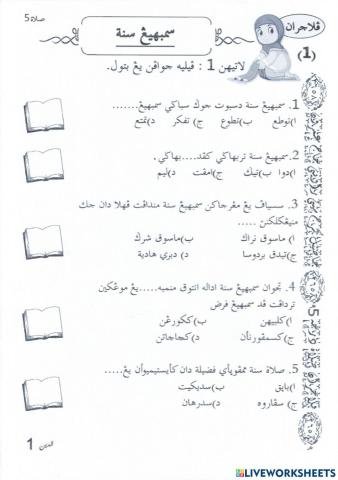 صلاة 5
ڤلاجران
(1)
سمبهيڠ سنة
لاتيهن 1 : ڤيليه جواڤن يڠ بتول.
1. سمبهيڠ سنة دسبوت جوݢ سباݢي سمبهيڠ.......
ا)توطع ب)تطوع ج)تفكر د)تمتع
2. سمبهيڠ سنة تربهاݢي كڤد....بهاݢي.
ا)دوا ب)تيݢ ج)امڤت د)ليم
3. سسياڤ يڠ مڠرجاكن سمبهيڠ سنة منداڤت ڤهلا دان جك
منيڠݢلكن .....
ا) ماسوق نراك ب)ماسوق شرݢ
ج)تيدق بردوسا د) دبري هادية
4. توجوان سمبهيڠ سنة اداله انتوق منمبه.....يڠ موڠكين
تردافت ڤد سمبهيڠ فرض
ا)كلبيهن ب)ككورڠن
ج)كسمڤورنأن د)كجاجاتن
5. صلاة سنة ممڤوڽأي فضيلة دان كأيستيميوان يڠ.....
ا)باڽق ب)سديكيت
ج) سڤاروه د)سدرهان
5
1
LIVEWORKSHEETS